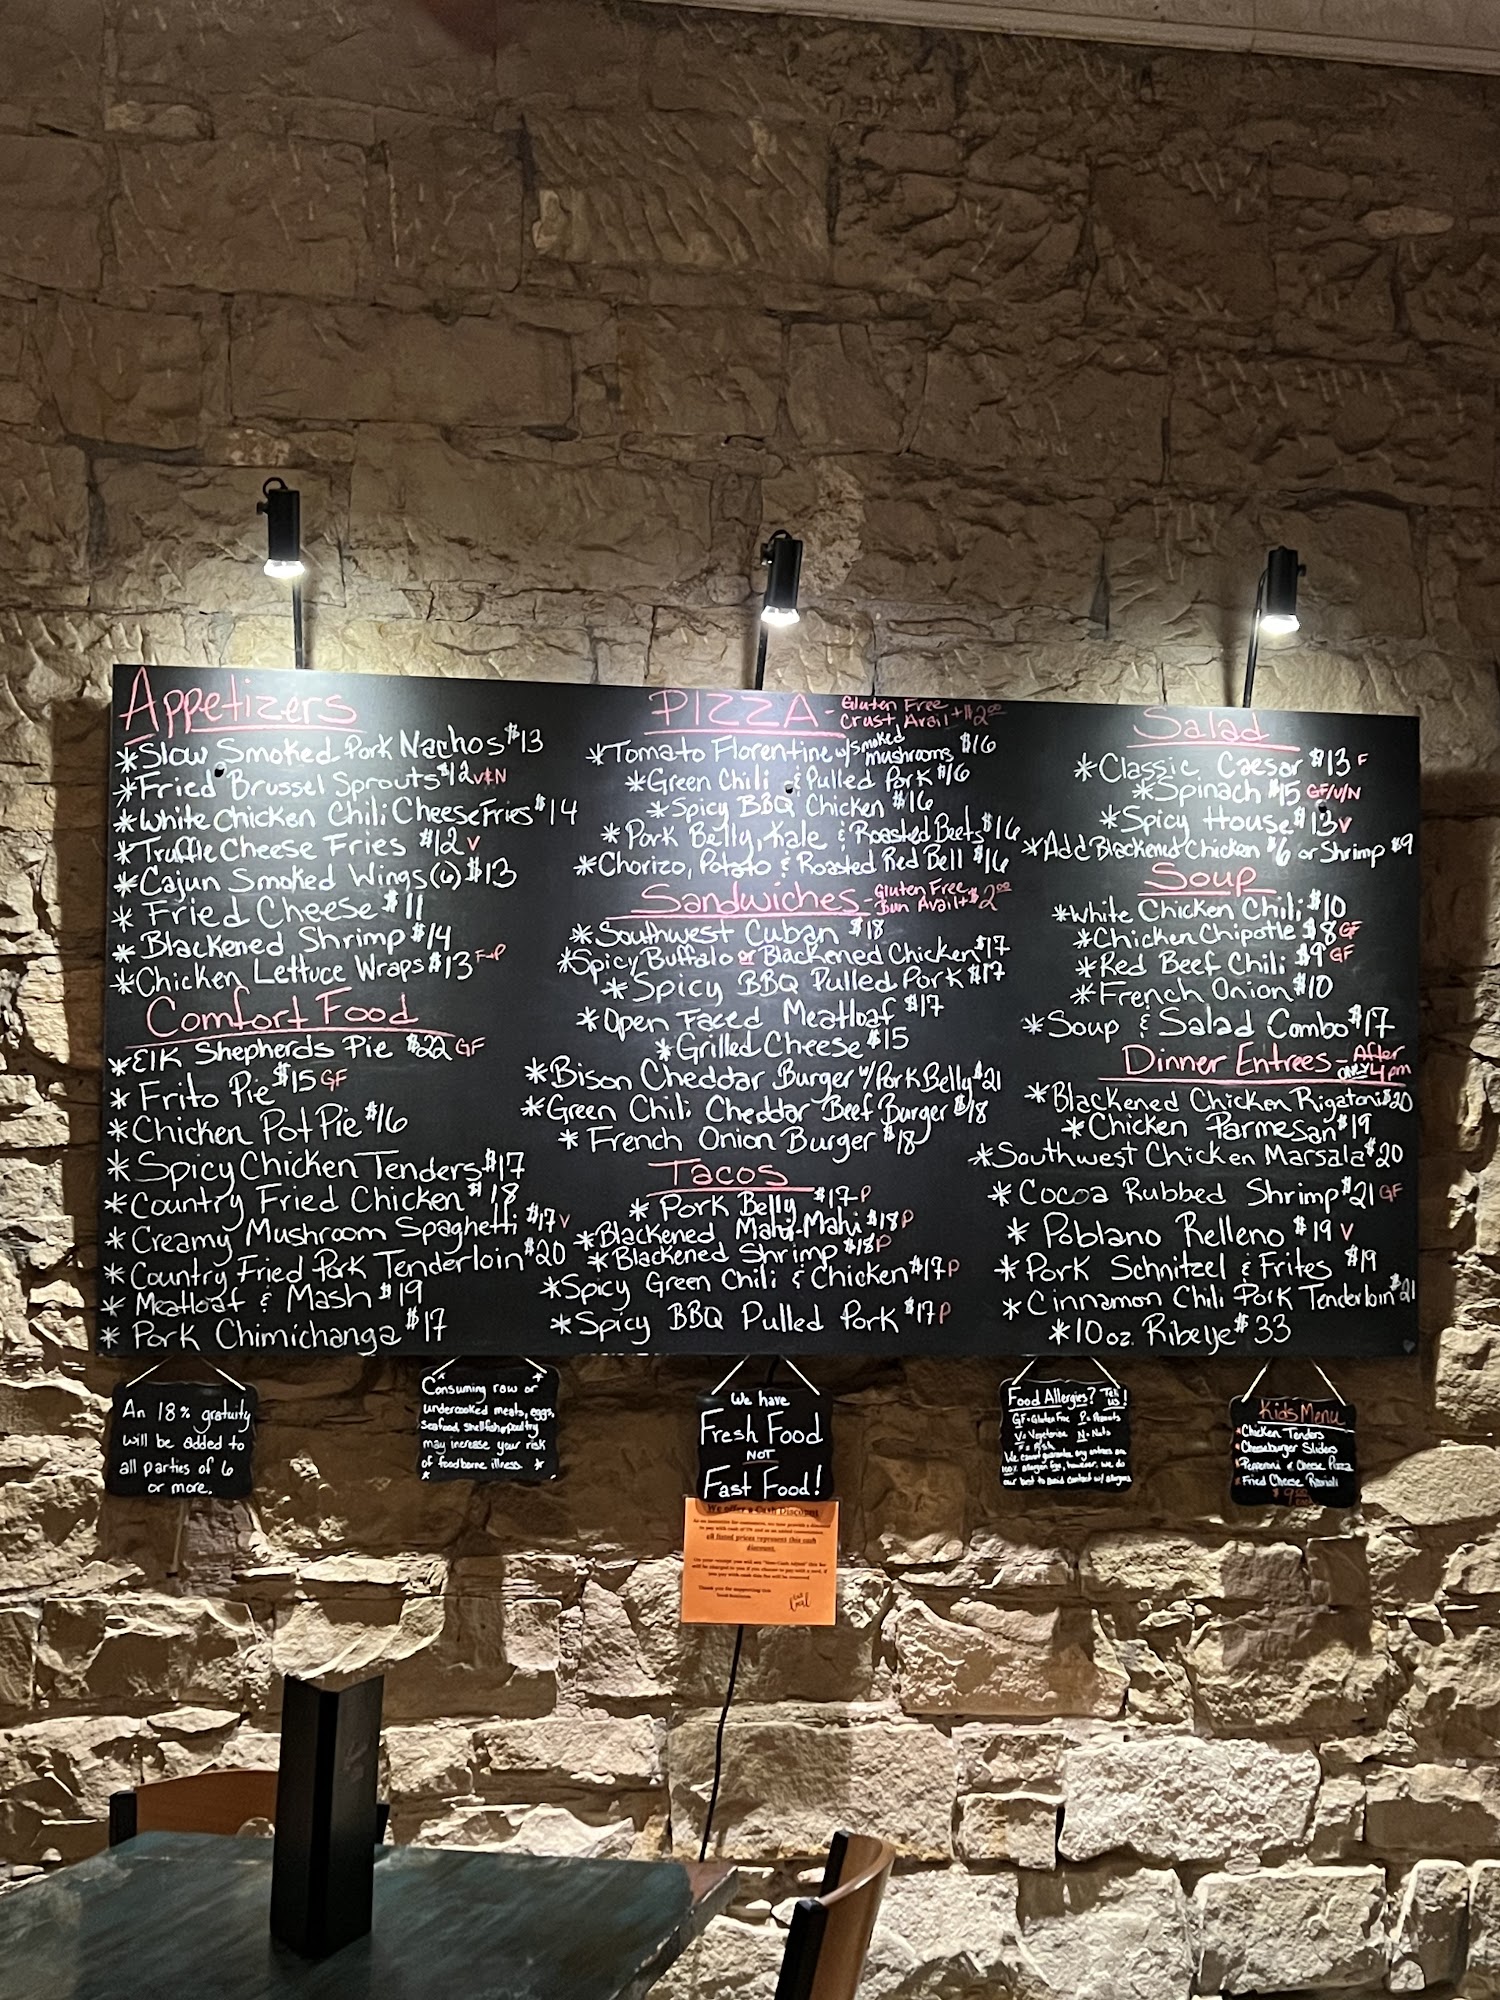 Appetizers
*Slow Smoked Pork Nachos $13
*Fried Brussel Sprouts $12 V&N
*White Chicken Chili Cheese Fries $14
*Truffle Cheese Fries $12 V
*Cajun Smoked Wings (6) $13
*Fried Cheese $11
*Blackened Shrimp $14
*Chicken Lettuce Wraps $13 F-P
Comfort Food
*Elk Shepherds Pie $22 GF
*Frito Pie $15 GF
*Chicken Pot Pie $16
*Spicy Chicken Tenders $17
*Country Fried Chicken $18
*Creamy Mushroom Spaghetti $17 V
*Country Fried Pork Tenderloin $20
*Meatloaf & Mash $19
*Pork Chimichanga $17
PIZZA - Gluten Free
Crust Avail + $2.00
*Tomato Florentine w/ smoked mushrooms $16
*Green Chili & Pulled Pork $16
*Spicy BBQ Chicken $16
*Pork Belly, Kale & Roasted Beets $16
*Chorizo, Potato & Roasted Red Bell $16
Sandwiches - Gluten Free
Bun Avail + $2.00
*Southwest Cuban $18
*Spicy Buffalo or Blackened Chicken $17
*Spicy BBQ Pulled Pork $17
*Open Faced Meatloaf $17
*Grilled Cheese $15
*Bison Cheddar Burger w/ Pork Belly $21
*Green Chili Cheddar Beef Burger $18
*French Onion Burger $18
Tacos
*Pork Belly $17 P
*Blackened Mahi-Mahi $18 P
*Blackened Shrimp $18 P
*Spicy Green Chili & Chicken $17 P
*Spicy BBQ Pulled Pork $17 P
Salad
*Classic Caesar $13 F
*Spinach $15 GF/V/N
*Spicy House $13 V
*Add Blackened Chicken $6 or Shrimp $9
Soup
*White Chicken Chili $10
*Chicken Chipotle $8 GF
*Red Beef Chili $9 GF
*French Onion $10
*Soup & Salad Combo $17
Dinner Entrees - After
ONLY 4pm
*Blackened Chicken Rigatoni $20
*Chicken Parmesan $19
*Southwest Chicken Marsala $20
*Cocoa Rubbed Shrimp $21 GF
*Poblano Relleno $19 V
*Pork Schnitzel & Frites $19
*Cinnamon Chili Pork Tenderloin $21
*10oz. Ribeye $33
An 18% gratuity
will be added to
all parties of 6
or more.
Consuming raw or
undercooked meats, eggs,
seafood, shellfish or poultry
may increase your risk
of foodborne illness.
We have
Fresh Food
NOT
Fast Food!
Food Allergies? Tell us!
GF=Gluten Free P=Peanuts
V=Vegetarian N=Nuts
F=Fish
We cannot guarantee any entrees are
100% allergen free, however, we do
our best to avoid contact w/ allergens
Kids Menu
Chicken Tenders
Cheeseburger Sliders
Pepperoni & Cheese Pizza
Fried Cheese Ravioli
We offer a Cash Discount
all listed prices represent this cash
discount.